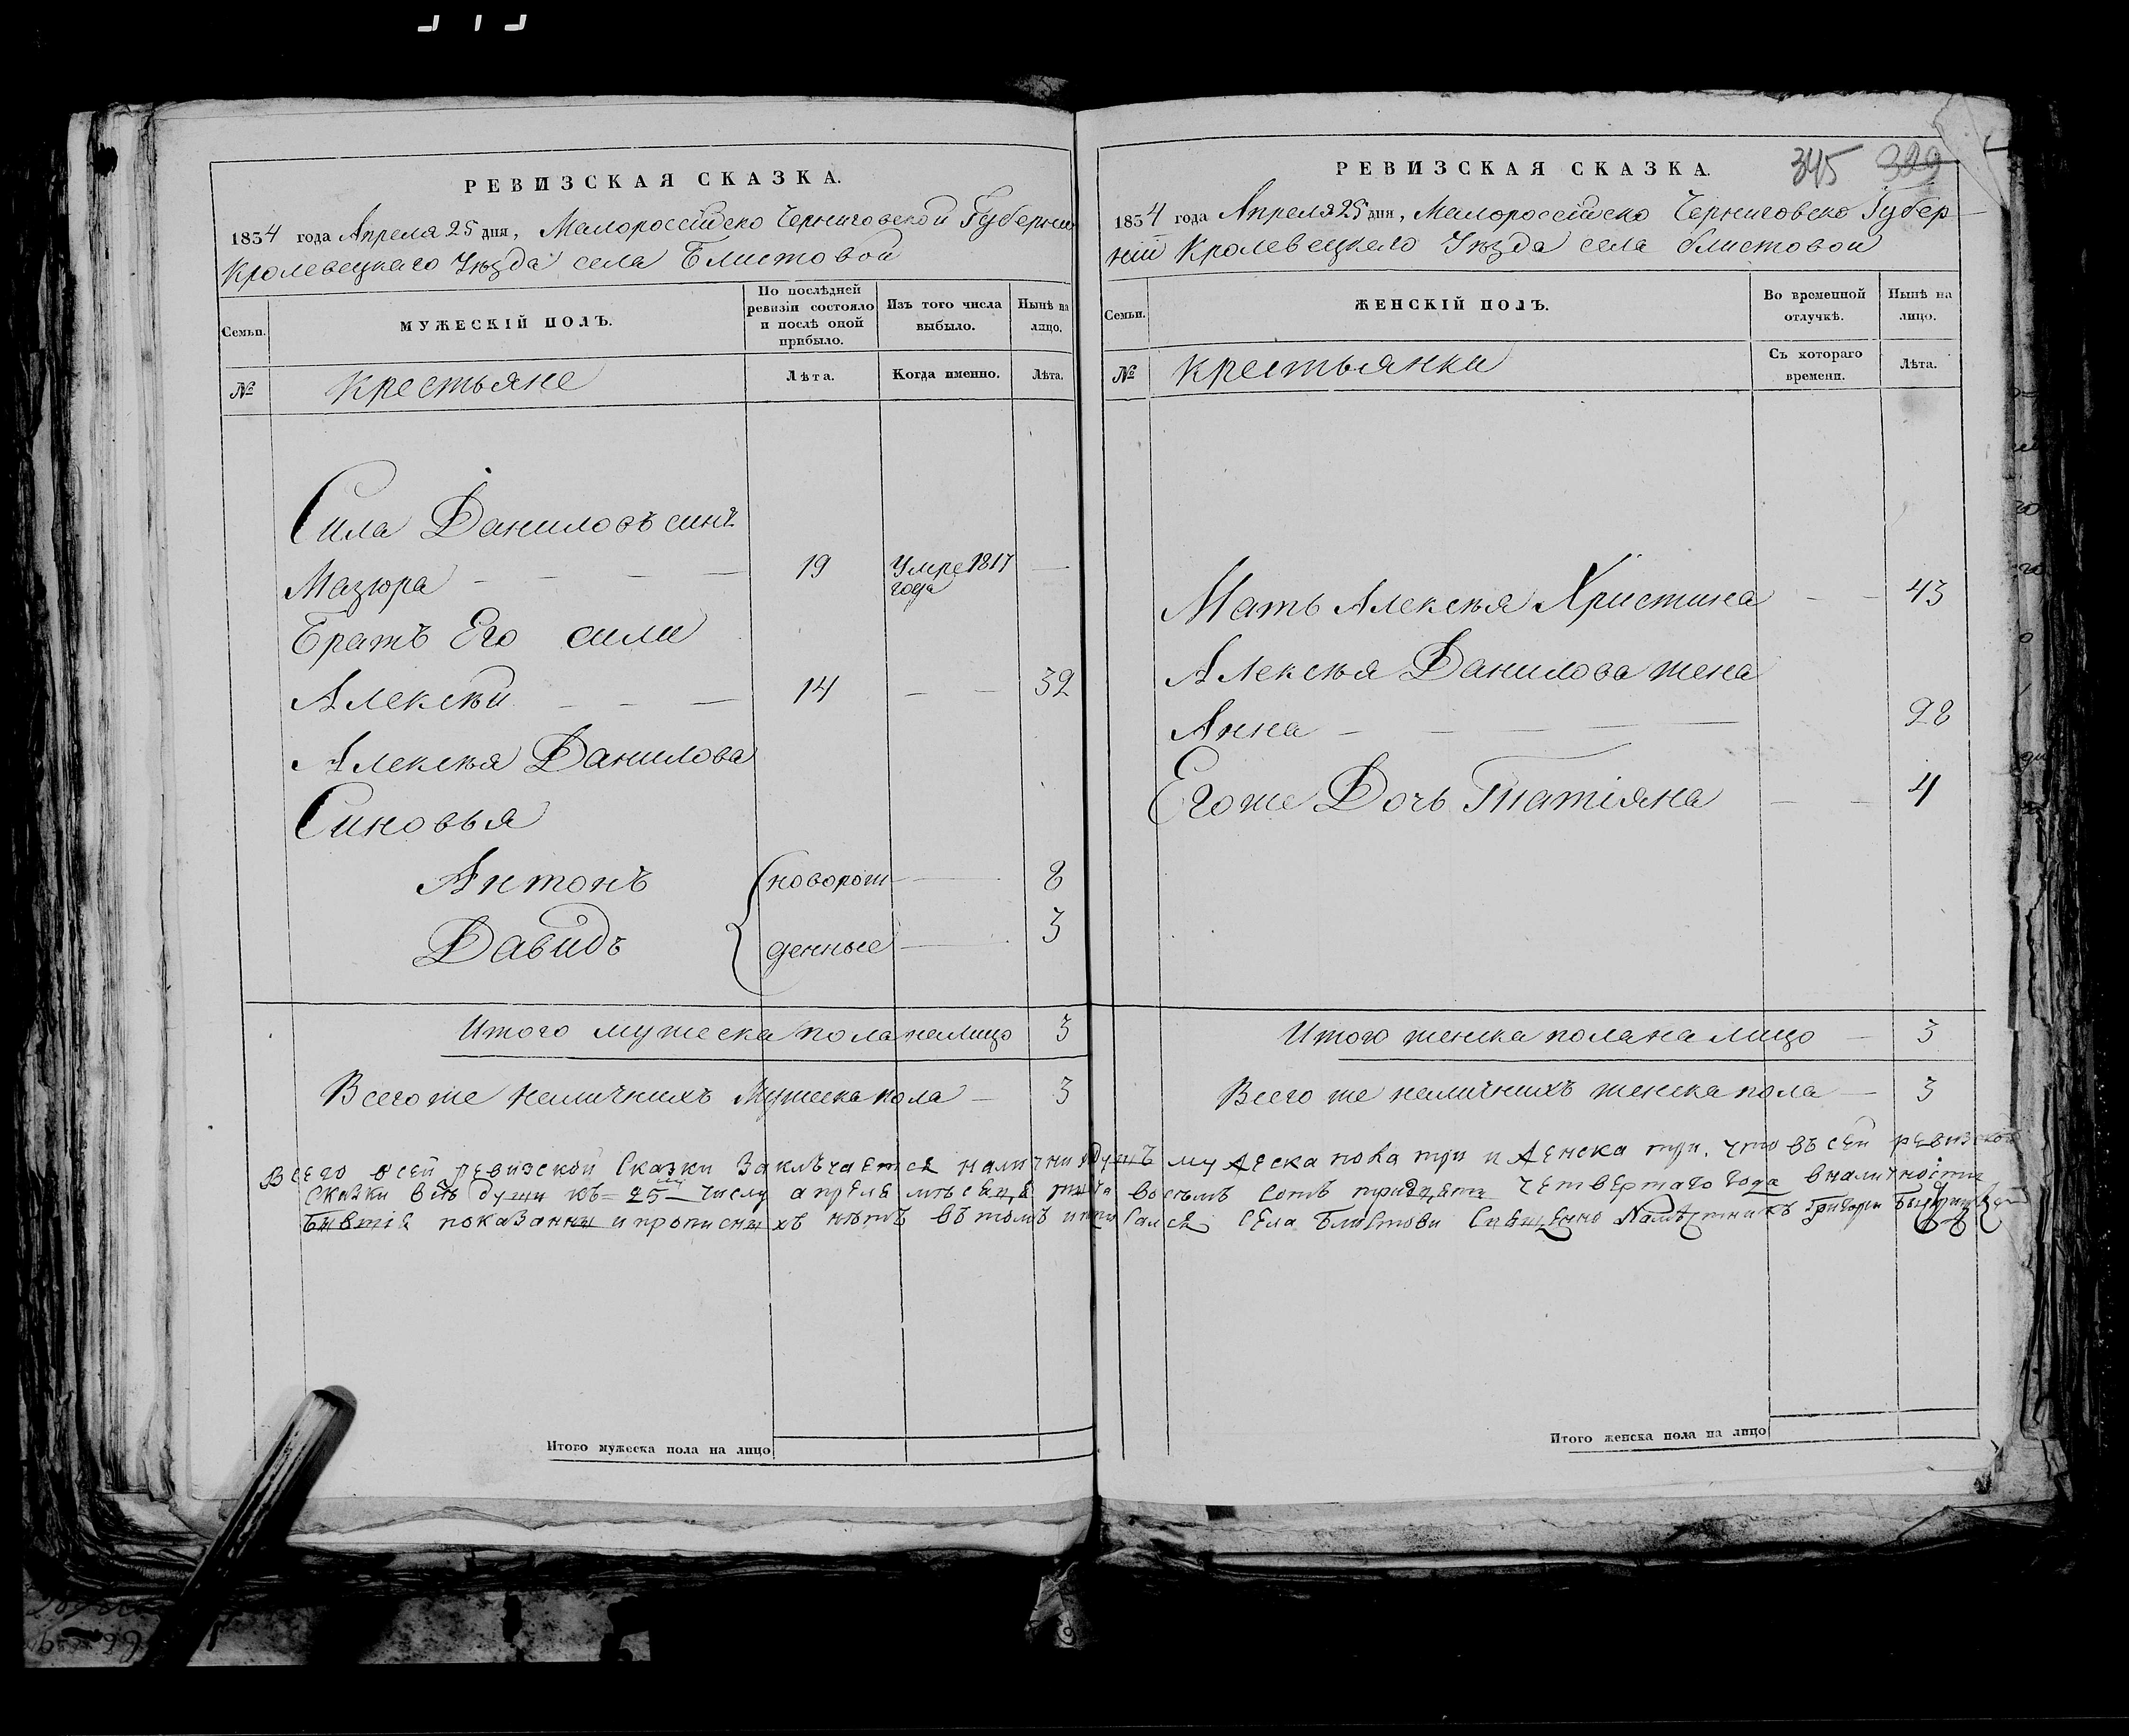 РЕВИЗСКАЯ СКАЗКА.
1834 года Апреля 25 дня, Малороссійско Черниговской Губерніи
Кролевецкаго Уѣзда села Блистовой
Семьи.
МУЖЕСКІЙ ПОЛЪ.
По послѣдней ревизіи состояло и послѣ оной прибыло.
Изъ того числа выбыло.
Нынѣ на лицо.
№
Крестьяне
Лѣта.
Когда именно.
Лѣта.
Сила Даниловъ синъ
Мазюра 19 Умре 1817 года
Братъ Его сили
Алексѣй 14 32
Алексѣя Данилова
Синовья
Антонъ новорож 8
Давидъ денные 3
Итого мужеска пола налицо 3
Всего же наличнихъ Мужеска пола 3
Итого мужеска пола на лицо
РЕВИЗСКАЯ СКАЗКА.
345 329
1834 года Апреля 25 дня, Малороссійско Черниговско Губер
ніи Кролевецкаго Уѣзда села блистовой
Семьи.
ЖЕНСКІЙ ПОЛЪ.
Во временной отлучкѣ.
Нынѣ на лицо.
№
Крестьянки
Съ котораго времени.
Лѣта.
Мать Алексѣя Христина 43
Алексѣя Данилова жена
Анна 28
Егоже Дочь Татіяна 4
Итого женска пола на лицо 3
Всего же наличнихъ женска пола 3
Всего всей ревизской Сказки Заключается налични душъ мужеска пола три и женска три, что въ сей ревизской
сказки всѣ души къ 25 му числу апреля мѣсеца восемъ сотъ тридцять четвертаго года вналичности
бившія показанни и прописнихъ нѣтъ въ томъ села Блистови Священно Намѣстникъ Григори
Итого женска пола на лицо